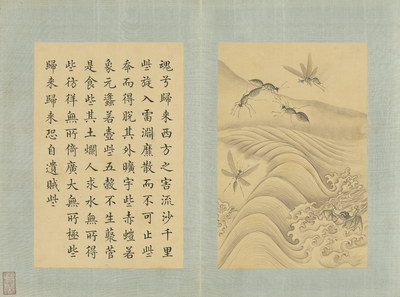 魂兮歸來西方之害流沙千里
些旋入雷淵靡散而不可止些
幸而得脫其外曠宇些赤螘若
象元蠭若壺些五穀不生藂菅
是食些其土爛人求水無所得
些彷徉無所倚廣大無所極些
歸來歸來恐自遺賊些